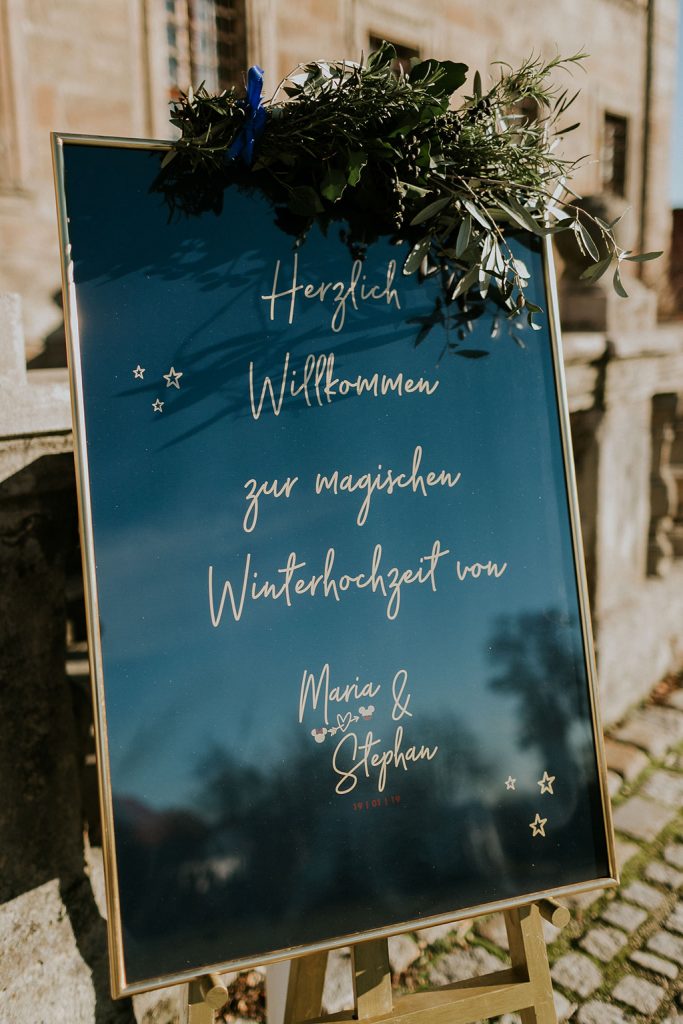 Herzlich
Willkommen
zur magischen
Winterhochzeit von
Maria &
Stephan
19 | 01 | 19